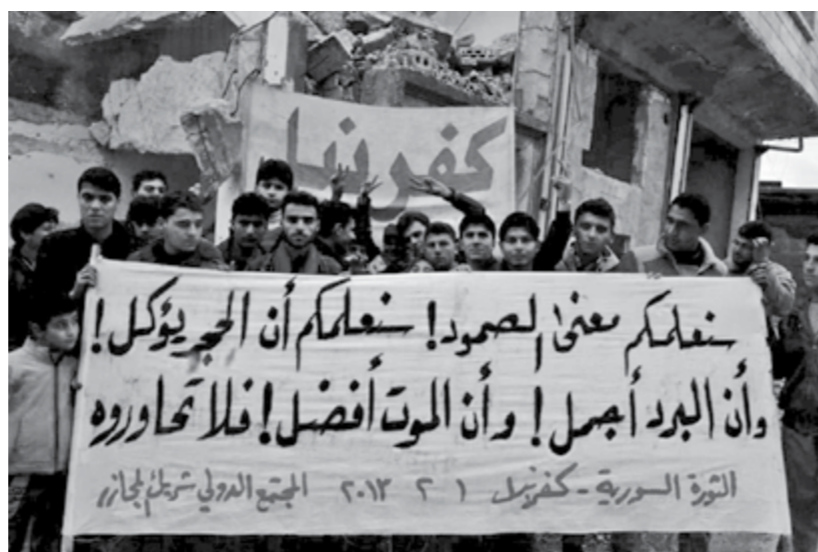 كفرنبل
سنعلمكم معنى الصمود! سنعلمكم أن الحجر يؤكل!
وأن البرد أجمل! وأن الموت أفضل! فلا تحاوروه
الثورة السورية - كفرنبل ١ ٢ ٢٠١٣ المجتمع الدولي شريك بالمجازر